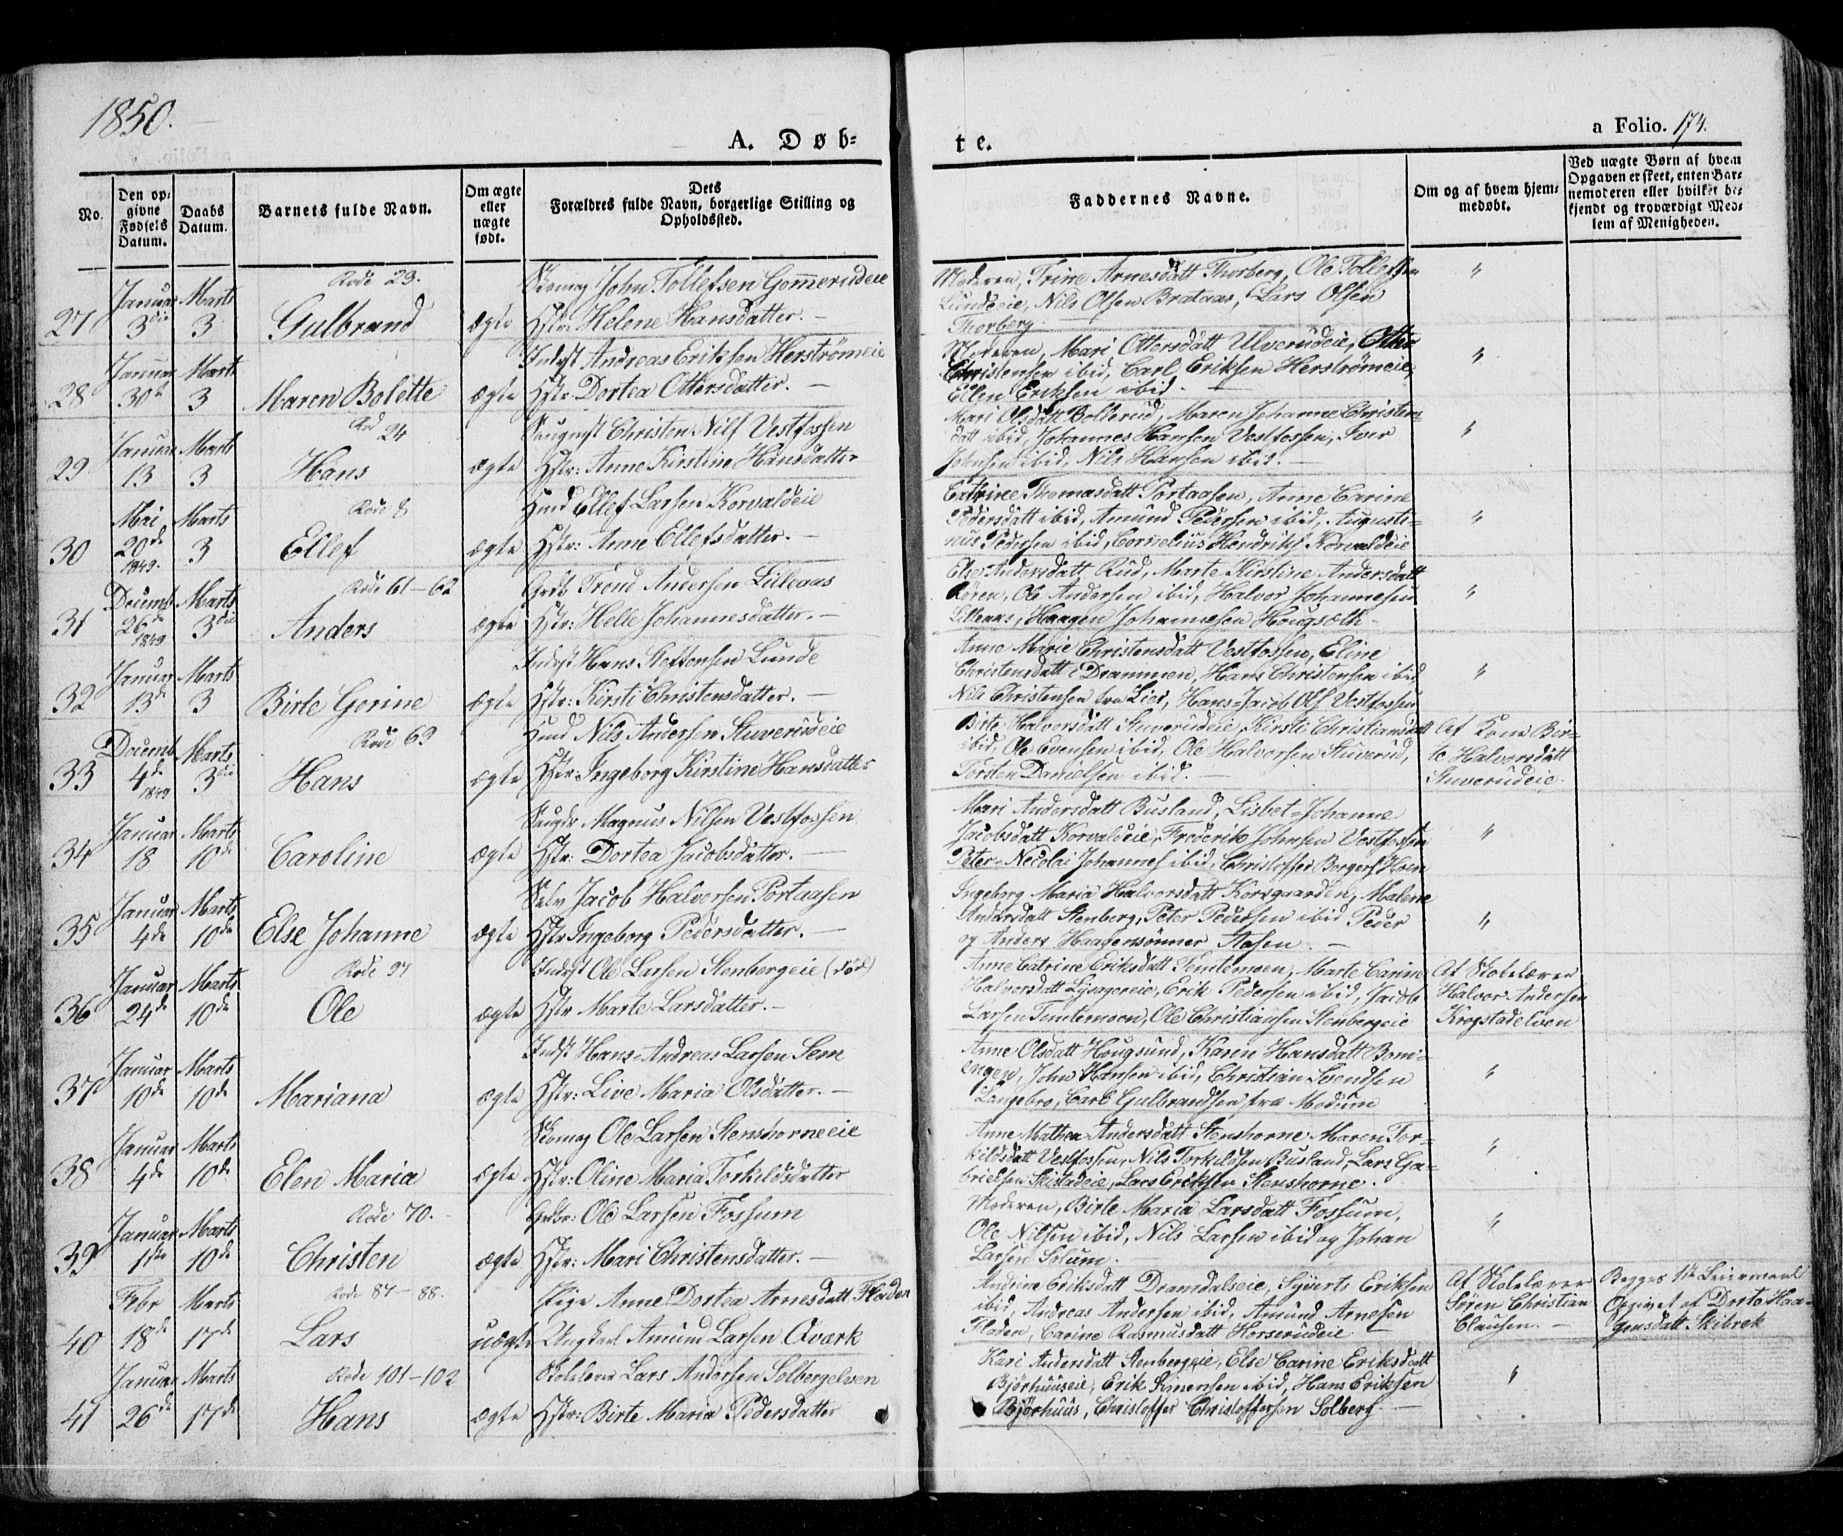 1850.
A. Døb-
te.
a Folio. 174.
No.
Den op-
givne
Fødsels
Datum.
Daabs
Datum.
Barnets fulde Navn.
Om ægte
eller
uægte
født.
Dets
Forældres fulde Navn, borgerlige Stilling og
Opholdssted.
Faddernes Navne.
Om og af hvem hjem-
medøbt.
Ved uægte Børn af hvem
Opgaven er skeet, enten Bar-
nemoderen eller hvilket be-
kjendt og troværdigt Med-
lem af Menigheden.
Rode 23.
27 Januar 3die Marts 3 Gulbrand ægte
Skomag John Tollefsen Gomerudeie
Hstr: Helene Hansdatter. —
Moderen, Trine Arnesdatt Thorberg, Ole Tollefsen
Lundeeie, Nils Olsen Brataas, Lars Olsen
Thorberg "
28 Januar 30te Marts 3 Maren Bolette ægte
Indst Andreas Eriksen Herstrømeie
Hstr Dortea Ottersdatter. —
Moderen, Mari Ottersdatt Ulverudeie, Otter
Christensen ibid, Carl Eriksen Herstrømeie,
Ellen Eriksen ibid. "
Rod 24
29 Januar 13 Marts 3 Hans ægte
Christen Nilf Vestfossen
Hstr: Anne Kirstine Hansdatter
Mari Olsdatt Bollerud, Maren Johanne Christens-
datt ibid, Johannes Hansen Vestfossen, Iver
Johnsen ibid, Nils Hansen ibid. — "
Rode 8
30 Mai 20de 1849. Marts 3 Ellef ægte
Hmd Ellef Larsen Korvaldeie
Hstr: Anne Ellefsdatter. —
Catrine Thomasdatt Portaasen, Anne Carine
Pedersdatt ibid, Amund Pedersen ibid, Auguste-
nus Pedersen ibid, Cornelius Hendriks Korvaldeie "
Rode 61-62
31 Decembr 26de 1849 Marts 3die Anders ægte
Grdb Trond Andersen Lilleaas
Hstr: Helle Johannesdatter. —
Else Andersdatt Rud, Marte Kirstine Andersdatt
Røren, Ole Andersen ibid, Halvor Johannesen
Lilleaas, Haagen Johannesen Hougsæth "
32 Januar 13de Marts 3 Birte Gorine ægte
Indst Hans Steffensen Lunde
Hstr: Kirsti Christensdatter. —
Anne Marie Christensdatt Vestfossen, Eline
Christensdatt i Drammen, Hans Christensen ibid
Nils Christensen fra Lier, Hans-Jacob Ols Vestfossen "
Rode 69
33 Decemb 4de 1849 Marts 3die Hans ægte
Hmd Nils Andersen Stuverudeie
Hstr Ingeborg Kirstine Hansdatter
Birte Halvorsdatt Stuverudeie, Kirsti Christiansdatt
ibid, Ole Evensen ibid, Ole Halvorsen Stuverud,
Torsten Danielsen ibid. —
Af Kone Bir-
te Halvorsdatt
Stuverudeie.
34 Januar 18 Marts 10de Caroline ægte
Magnus Nilsen Vestfossen
Hstr: Dortea Jacobsdatter. —
Mari Andersdatt Busland, Lisbet-Johanne
Jacobsdatt Korvaldeie, Frederik Johnsen Vestfossen
Peter-Nicolai Johannes ibid, Christoffer Borgers Hoen "
35 Januar 4de Marts 10de Else Johanne ægte
Selv Jacob Halvorsen Portaasen
Hstr Ingeborg Pedersdatter. —
Ingeborg Maria Halvorsdatt Korsgaarden, Malene
Andersdatt Stenberg, Peter Pedersen ibid Peder
og Anders Haagensønner Aasen. — "
Rode 97
36 Januar 24de Marts 10de Ole ægte
Indst Ole Larsen Stenbergeie (død)
Hstr Marte Larsdatter. —
Anne Catrine Eriksdatt Temtemoen, Marte Carine
Halvorsdatt Lysagereie, Erik Pedersen ibid, Jacob
Larsen Temtemoen, Ole Christiansen Stenbergeie
Af Skolelærer
Halvor Andersen
Krogstadelven
37 Januar 10de Marts 10de Mariana ægte
Indst Hans-Andreas Larsen Sem
Hstr: Live Maria Olsdatter. —
Anne Olsdatt Hougsund, Karen Hansdatt Boni-
engen, John Hansen ibid, Christian Svendsen
Langebro, Carl Gulbrandsen fra Modum "
38 Januar 4de Marts 10de Elen Maria ægte
Skomag Ole Larsen Stenshorneeie
Hstr: Oline Maria Torkildsdatter
Anne Mathea Andersdatt Stenshorne Maren Tor-
kildsdatt Vestfossen, Nils Torkildsen Busland, Lars Ga-
brielsen Skistadeie, Lars Eriksen Stenshorne. "
Rode 70.
39 Januar 1ste Marts 10de Christen ægte
Grdbr: Ole Larsen Fossum
Hstr: Mari Christensdatter. —
Moderen, Birte Maria Larsdatt Fossum,
Ole Nilsen ibid, Nils Larsen ibid og Johan
Larsen Solum. "
Rode 87-88.
40 Febr 18de Marts 17de Lars uægte
Pige Anne Dortea Arnesdatt Floden
Ungkarl Amund Larsen Qværk
Andrine Eriksdatt Dramdalseie, Syvert Eriksen
ibid, Andreas Andersen ibid, Amund Arnesen
Floden, Carine Rasmusdatt Horserudeie
Af Skolelærer
Søren Christian
Clausen. —
Begges 1te Leiermaal
Opgivet af Dorte Haa-
gensdatt Skibrek
Rode 101-102
41 Januar 26de Marts 17de Hans ægte
Skolelærer Lars Andersen Solbergelven
Hstr: Birte Maria Pedersdatter
Kari Andersdatt Stenbergeie, Else Carine Eriksdatt
Bjørhuuseie, Erik Simensen ibid, Hans Eriksen
Bjørhuus, Christoffer Christoffersen Solberg. "